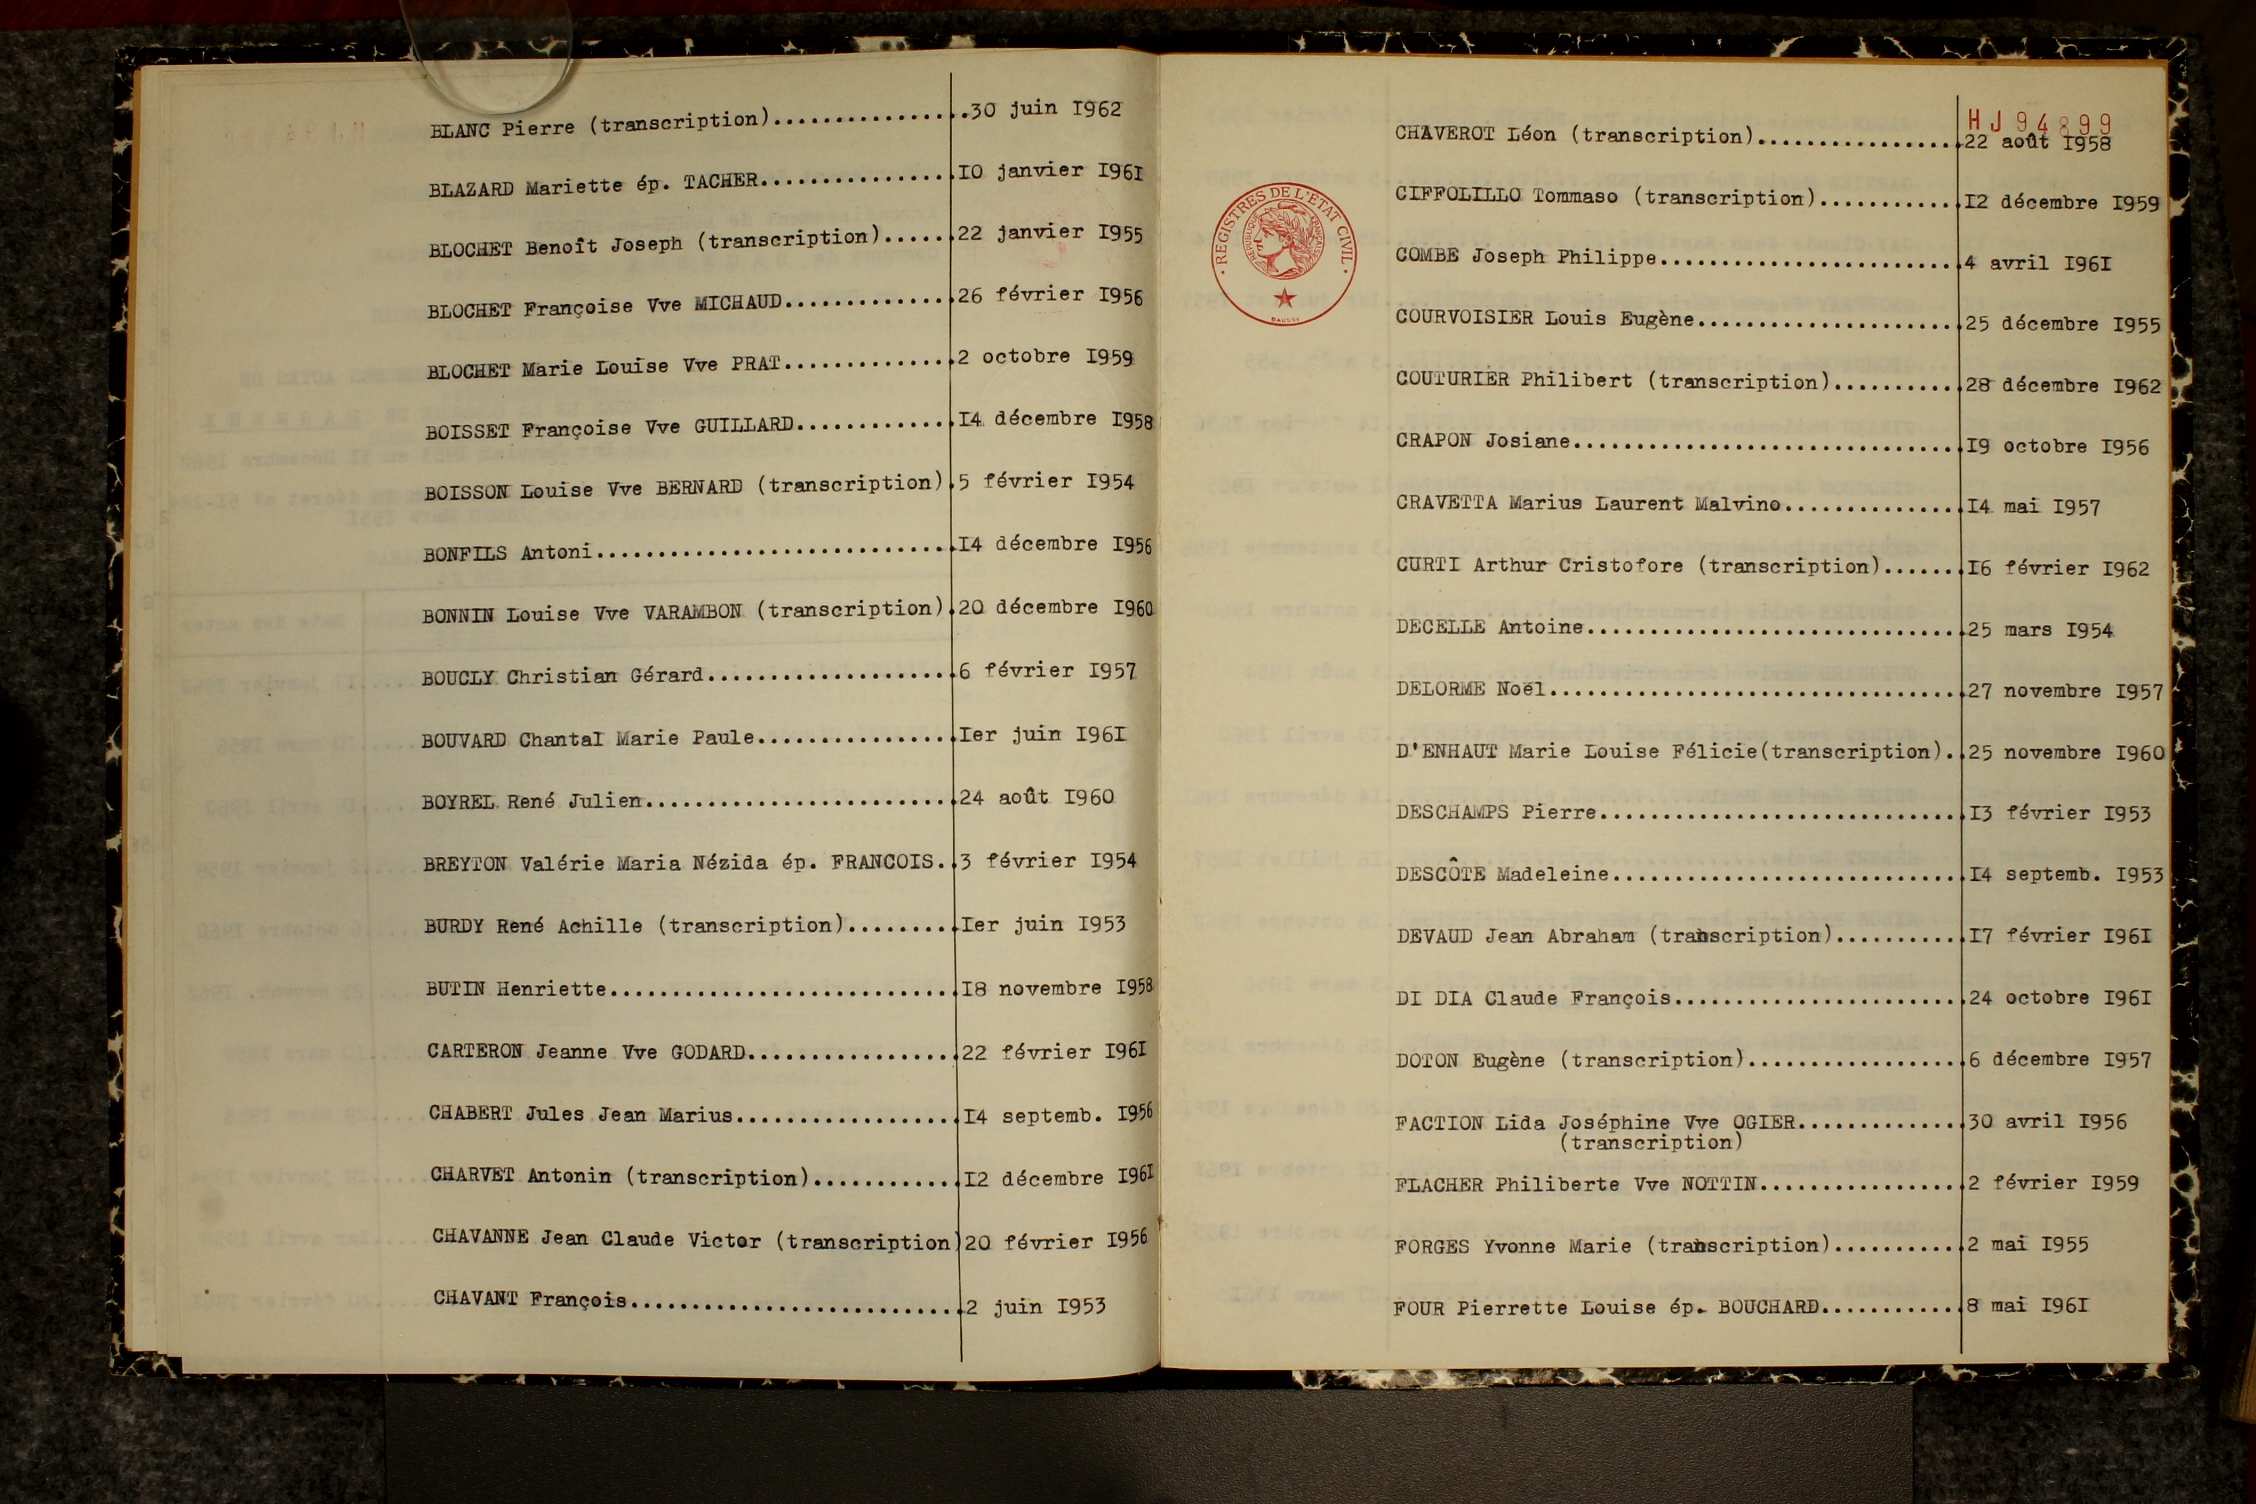 BLANC Pierre (transcription)................30 juin I962
BLAZARD Mariette ép. TACHER................IO janvier I96I
BLOCHET Benoît Joseph (transcription)......22 janvier I955
BLOCHET Françoise Vve MICHAUD..............26 février I956
BLOCHET Marie Louise Vve PRAT..............2 octobre I959
BOISSET Françoise Vve GUILLARD.............I4 décembre I958
BOISSON Louise Vve BERNARD (transcription).5 février I954
BONFILS Antoni.............................I4 décembre I956
BONNIN Louise Vve VARAMBON (transcription).20 décembre I960
BOUCLY Christian Gérard....................6 février I957
BOUVARD Chantal Marie Paule................Ier juin I96I
BOYREL René Julien.........................24 août I960
BREYTON Valérie Maria Nézida ép. FRANCOIS..3 février I954
BURDY René Achille (transcription).........Ier juin I953
BUTIN Henriette............................I8 novembre I958
CARTERON Jeanne Vve GODARD.................22 février I96I
CHABERT Jules Jean Marius..................I4 septemb. I956
CHARVET Antonin (transcription)............I2 décembre I96I
CHAVANNE Jean Claude Victor (transcription)20 février I956
CHAVANT François...........................2 juin I953
HJ94899
CHAVEROT Léon (transcription).................22 août I958
REGISTRES DE L'ETAT CIVIL
RÉPUBLIQUE FRANÇAISE
CIFFOLILLO Tommaso (transcription)............I2 décembre I959
COMBE Joseph Philippe.........................4 avril I96I
COURVOISIER Louis Eugène......................25 décembre I955
COUTURIER Philibert (transcription)...........28 décembre I962
CRAPON Josiane................................I9 octobre I956
CRAVETTA Marius Laurent Malvino...............I4 mai I957
CURTI Arthur Cristofore (transcription).......I6 février I962
DECELLE Antoine...............................25 mars I954
DELORME Noël..................................27 novembre I957
D'ENHAUT Marie Louise Félicie(transcription)..25 novembre I960
DESCHAMPS Pierre..............................I3 février I953
DESCÔTE Madeleine.............................I4 septemb. I953
DEVAUD Jean Abraham (transcription)...........I7 février I96I
DI DIA Claude François........................24 octobre I96I
DOTON Eugène (transcription)..................6 décembre I957
FACTION Lida Joséphine Vve OGIER..............30 avril I956
(transcription)
FLACHER Philiberte Vve NOTTIN.................2 février I959
FORGES Yvonne Marie (transcription)...........2 mai I955
FOUR Pierrette Louise ép. BOUCHARD............8 mai I96I